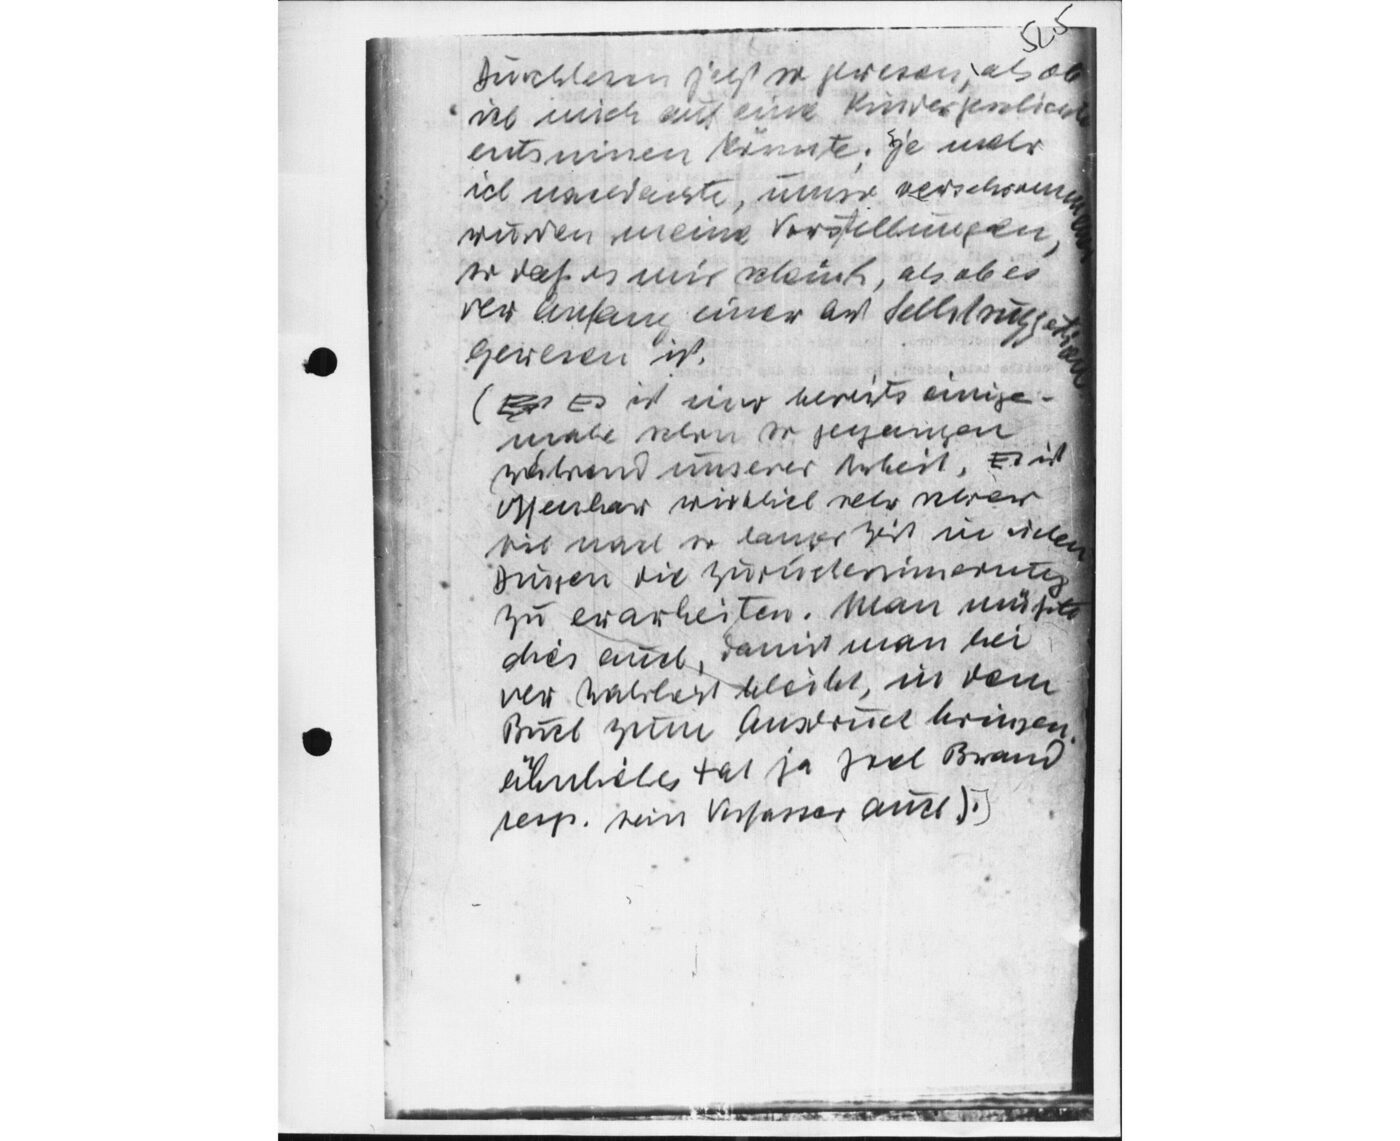 525
Durchlesen jetzt so gewesen, als ob
ich mich auf eine Kindergeschichte
entsninen könnte. Je mehr
ich nachdachte, umso verschwommener
wurden meine Vorstellungen,
so daß es mir scheint, als ob es
der Anfang einer Art Selbstsuggestion
gewesen ist.
( Es ist mir bereits einige-
male schon so gegangen
während unserer Arbeit. Es ist
offenbar wirklich sehr schwer
sich nach so langer Zeit in vielen
Dingen die Zurückerinnerung
zu erarbeiten. Man müsste
dies auch, damit man bei
der Wahrheit bleibt, in dem
Buch zum Ausdruck bringen.
ähnliches tat ja Joel Brand
resp. sein Verfasser auch).]